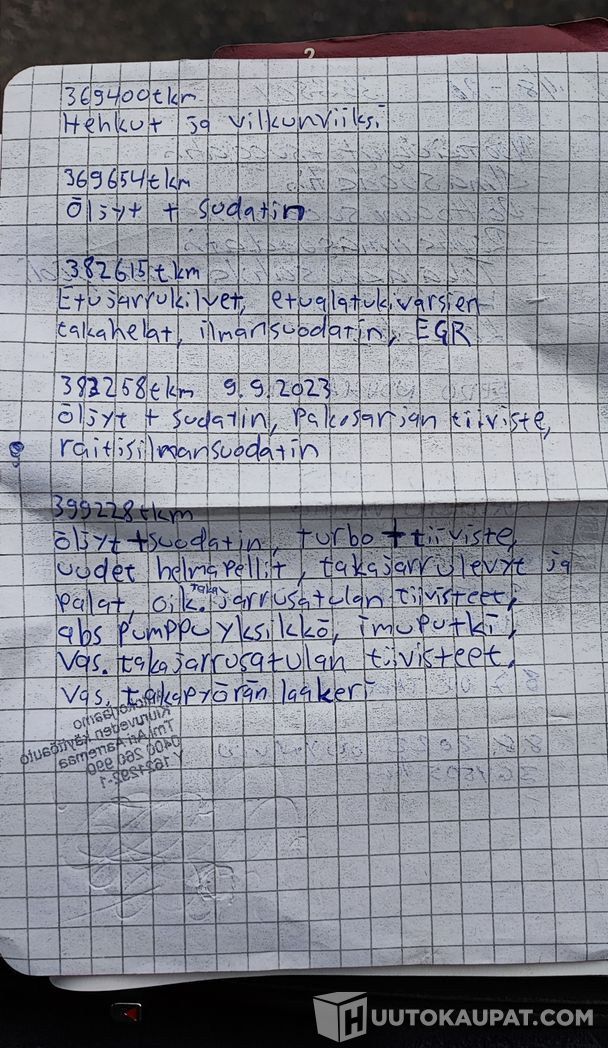 2
369400tkm
Hehkut ja vilkunviiksi
369654tkm
Öljyt + sudatin
382615tkm
Etujarrukilvet, etualatukivarsien
takahelat, ilmansuodatin, EGR
9.9.2023
Öljyt + sudatin, pakosarjan tiiviste,
raitisilmansuodatin
399228tkm
öljyt + suodatin, turbo + tiiviste,
uudet helmapellit, takajarrulevyt ja
palat, oik. taka jarrusatulan tiivisteet,
abs pumppuyksikkö, imuputki,
Vas. takajarrusatulan tiivisteet,
Vas. takapyörän laakeri
Kiuruveden käyttöauto
Tmi Ari Aarremaa
0400 260 990
1621292-1
HUUTOKAUPAT.COM